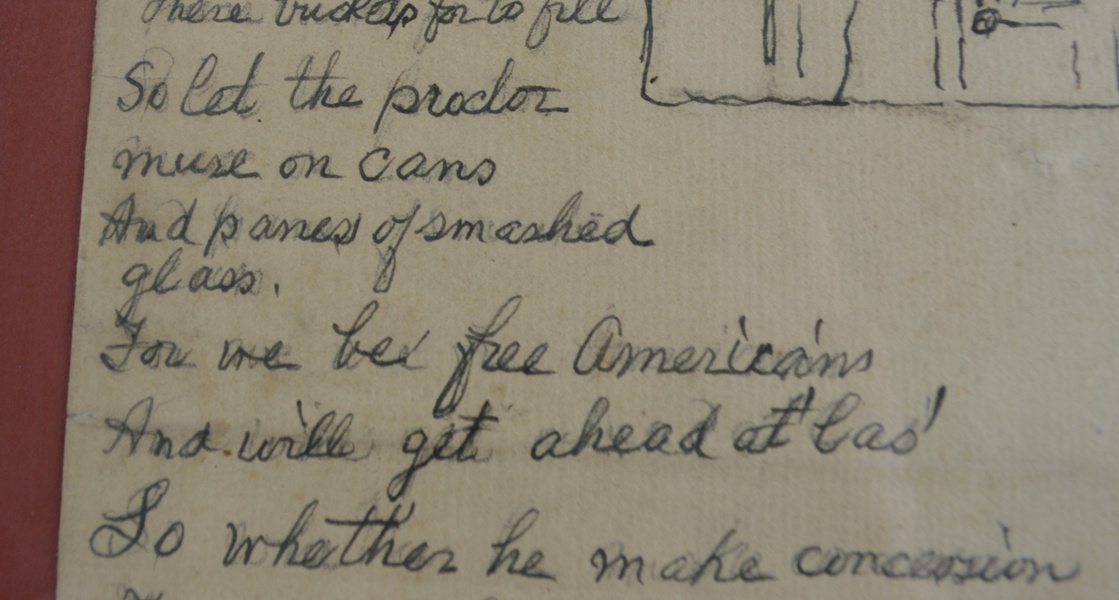 These buckets for to fill
So let the proctor
muse on cans
And panes of smashed
glass.
For we bee free Americans
And will get ahead at las'
So whether he make concession